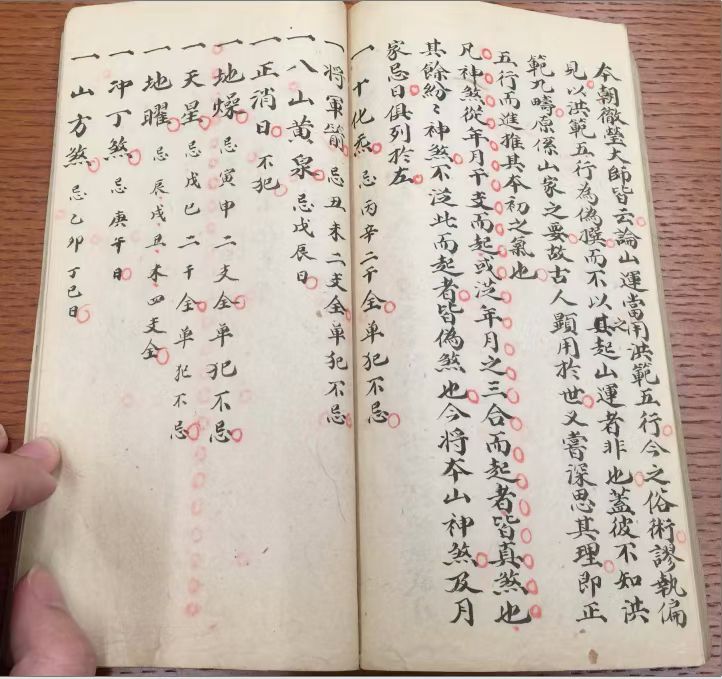 本朝徹瑩大師皆云論山運當用洪範五行今之俗術謬執偏
見以洪範五行為偽撰而不以之起山運者非也蓋彼不知洪
範九疇原係山家之要故古人顯用於世又嘗深思其理即正
五行而進推其本初之氣也
凡神煞從年月干支而起或從年月之三合而起者皆真煞也
其餘紛〻神煞不從此而起者皆偽煞也今將本山神煞及月
家忌日俱列於左
一十化炁 忌丙辛二干全單犯不忌
一將軍箭 忌丑未二支全單犯不忌
一八山黃泉 忌戊辰日
一正消日 不犯
一地燥 忌寅申二支全單犯不忌
一天星 忌戊巳二干全單犯不忌
一地曜 忌辰戌丑未四支全
一沖丁煞 忌庚午日
一山方煞 忌乙卯丁巳日